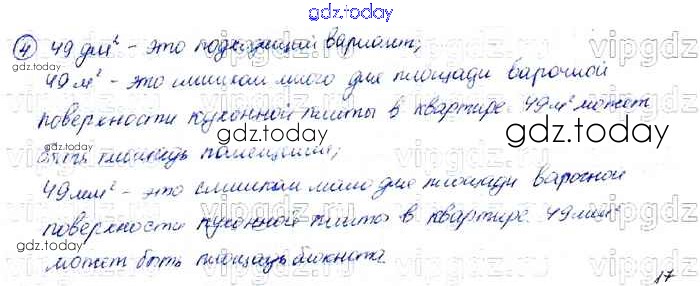 gdz.today
④ 49 дм² - это подходящий вариант;
49 м² - это слишком много для площади варочной
поверхности кухонной плиты в квартире. 49 м² может
быть площадь помещения;
49 мм² - это слишком мало для площади варочной
поверхности кухонной плиты в квартире. 49 мм²
может быть площадь блокнота.
17
gdz.today
gdz.today
gdz.today
vipgdz
vipgdz
vipgdz